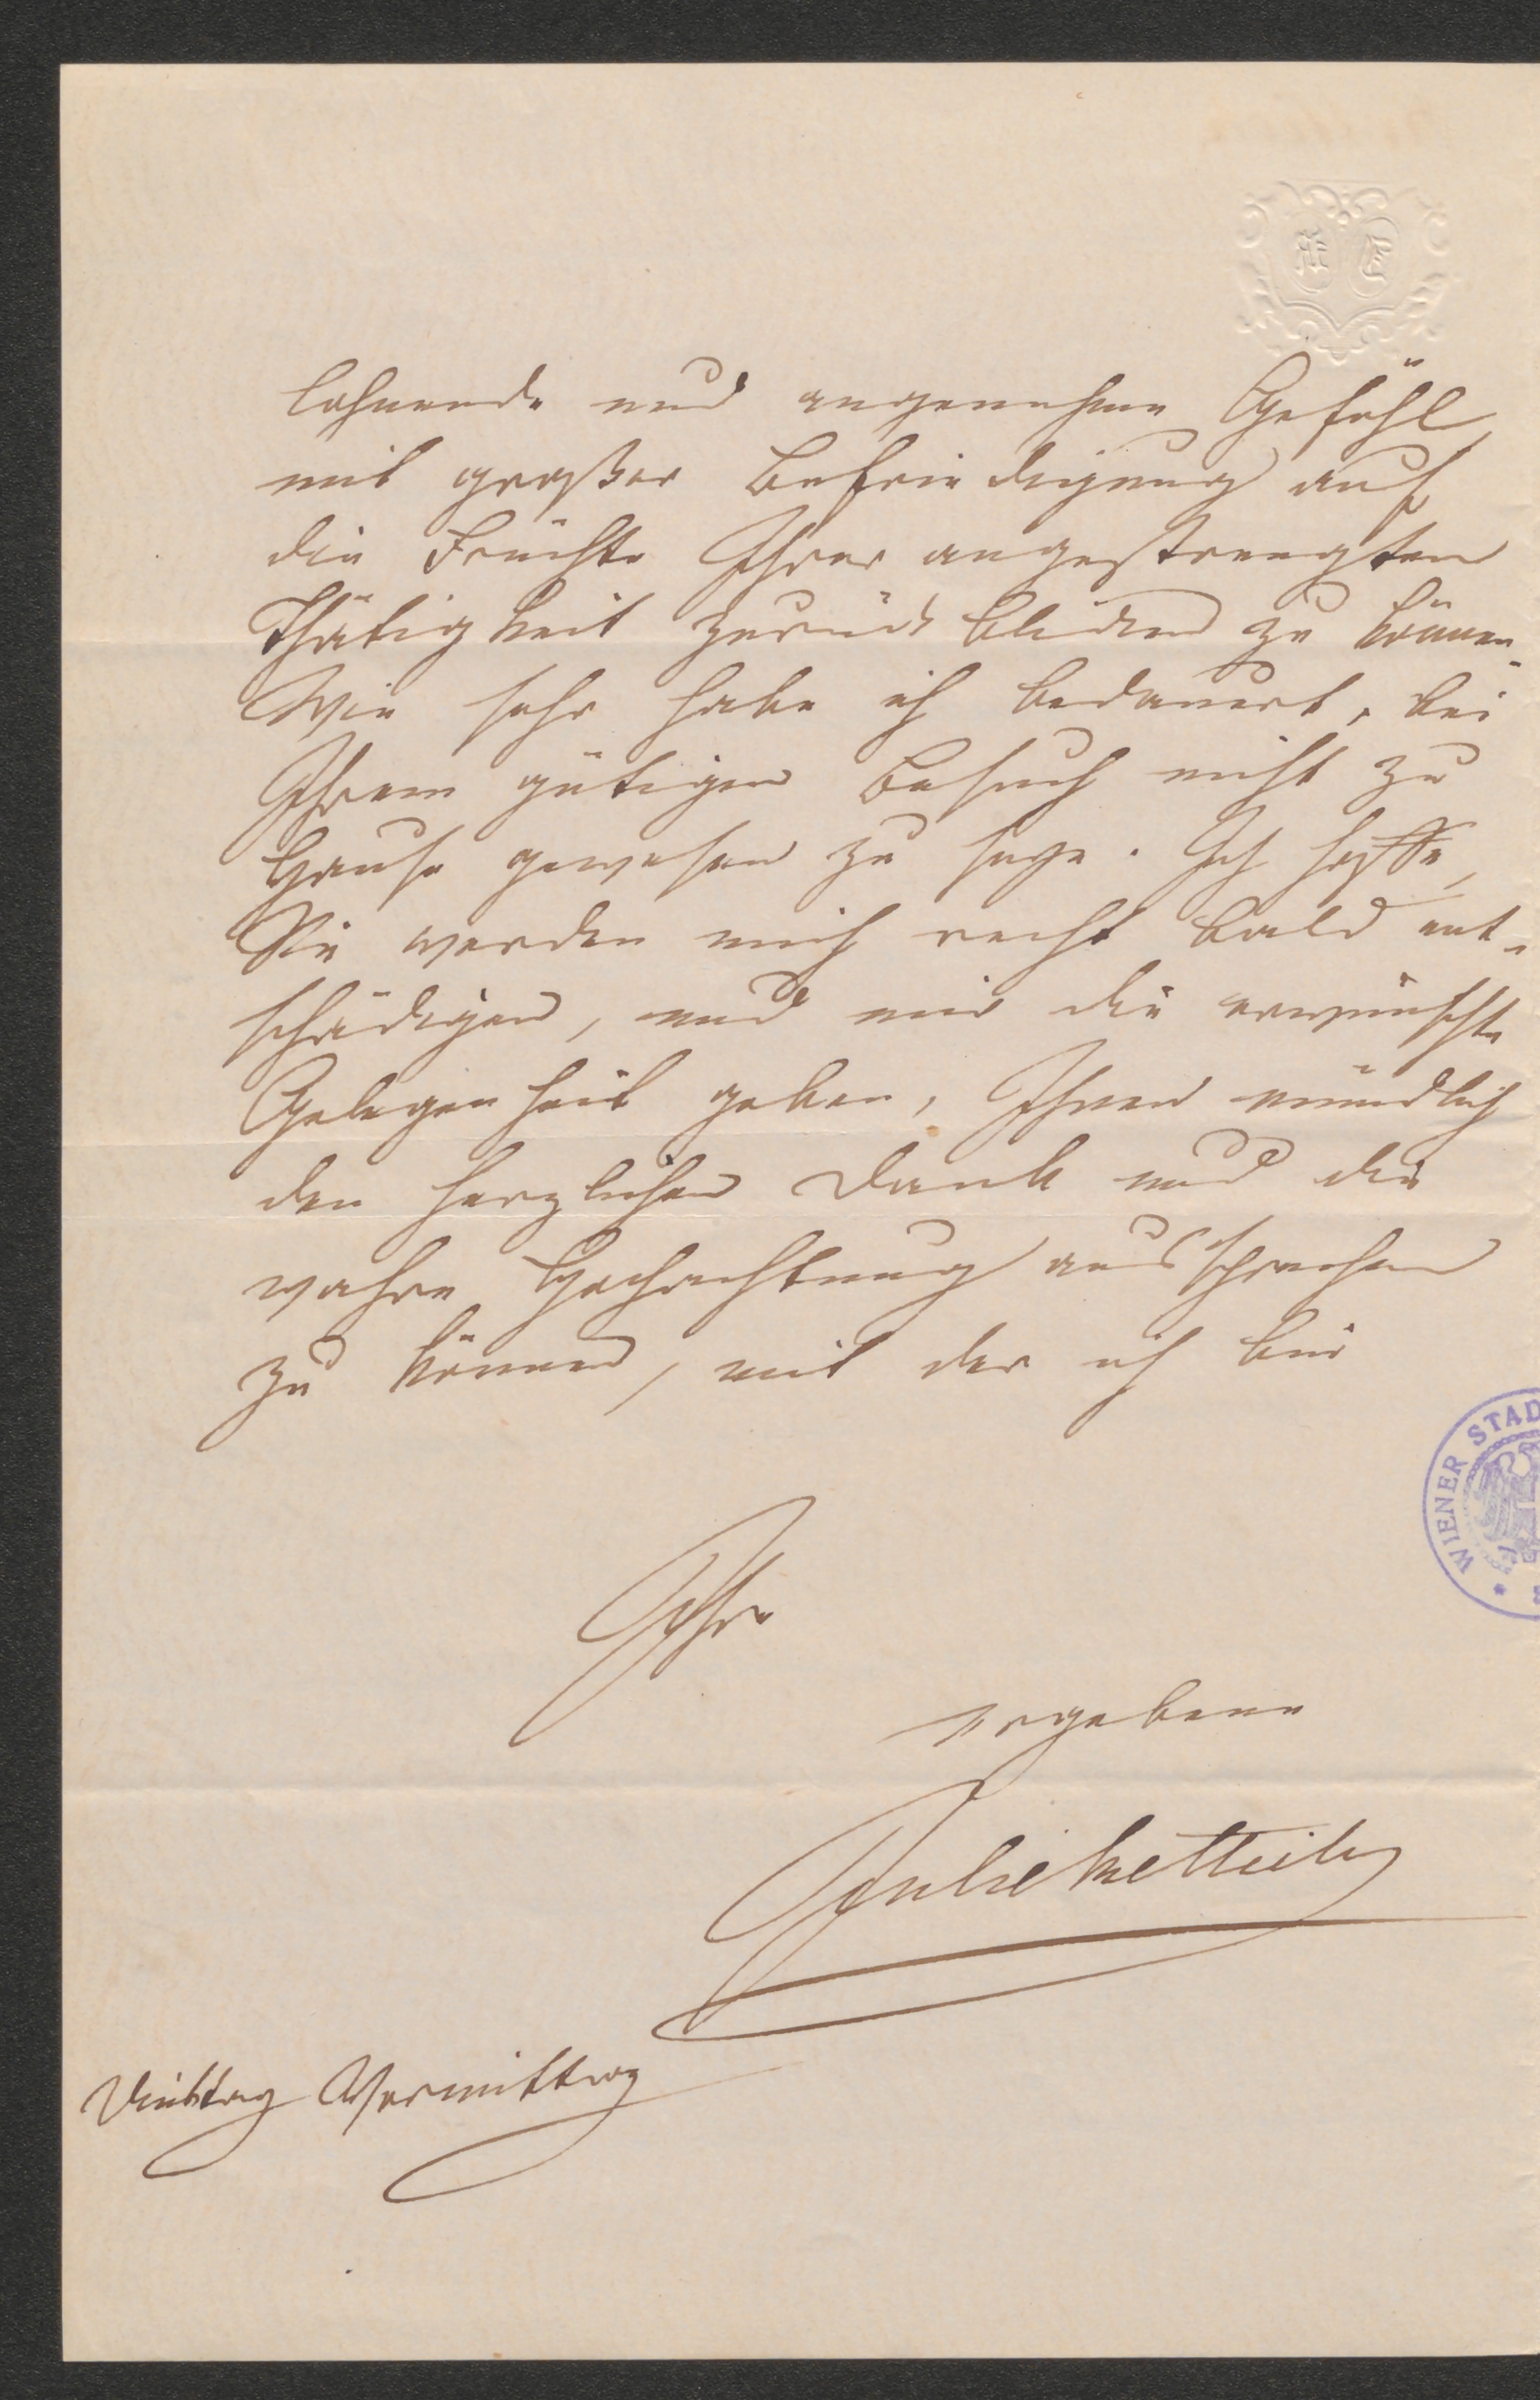 lohnende und angenehme Gefühl
mit großer Befriedigung auf
die Früchte Ihrer angestrengten
Thätigkeit zurück blicken zu können.
Wie sehr habe ich bedauert, bei
Ihrem gütigen Besuch nicht zu
Hause gewesen zu seyn. Ich hoffe,
Sie werden mich recht bald ent-
schädigen, und mir die erwünschte
Gelegenheit geben, Ihnen mündlich
den herzlichen Dank und die
wahre Hochachtung aussprechen
zu können, mit der ich bin
WIENER STAD
Ihre
ergebene
Julie Rettich
Dienstag Vormittag